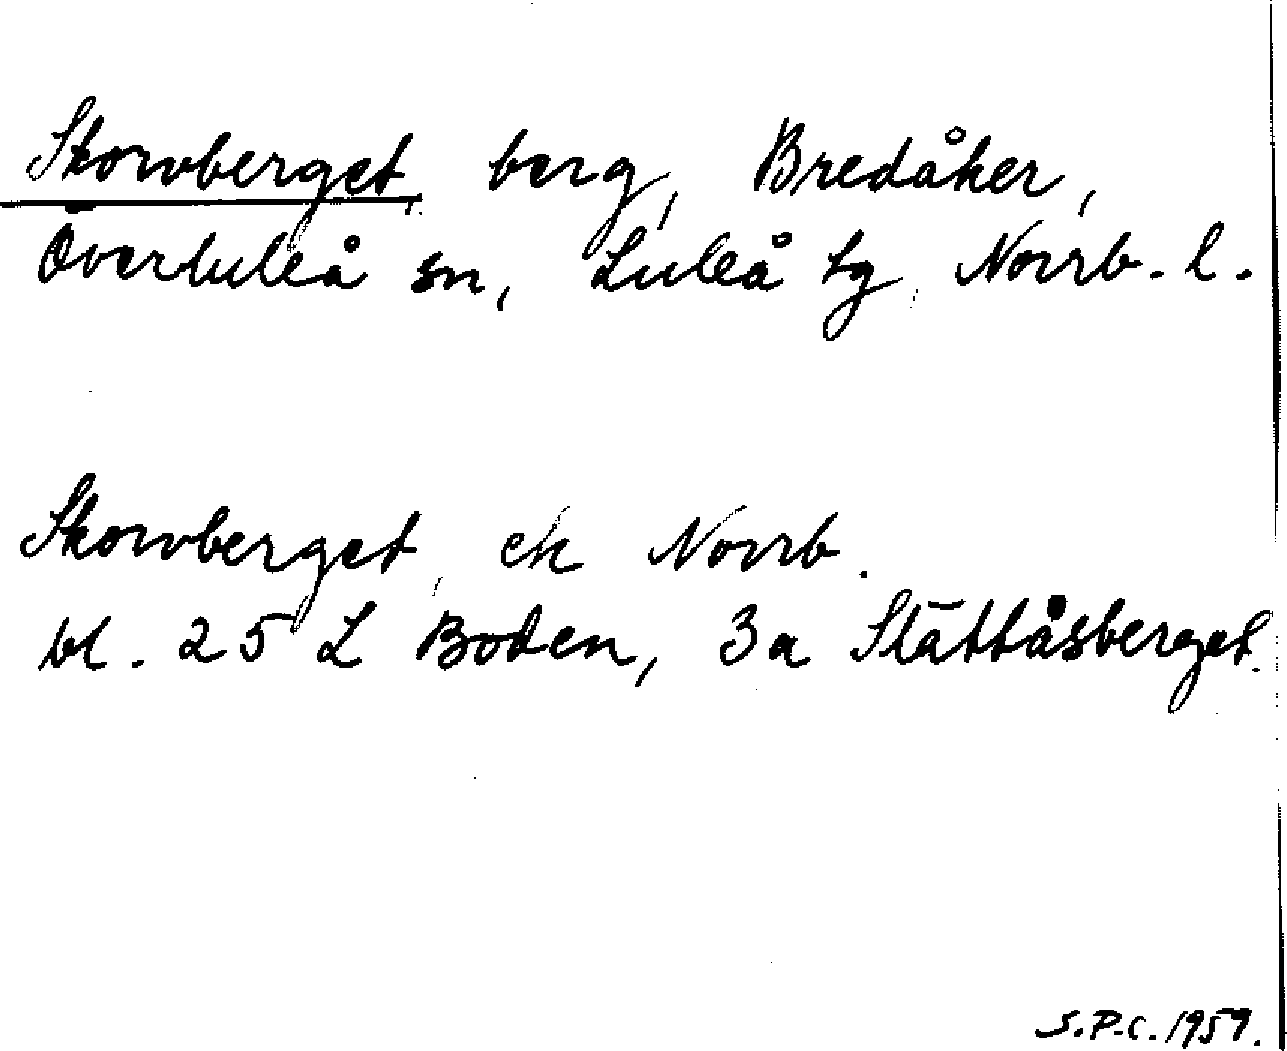 Skorvberget, berg, Bredåker,
Överluleå sn, Luleå tg, Norrb. l.
Skorvberget, ek Norrb.
bl. 25 L Boden, 3a Slättåsberget.
S.P.C. 1959.